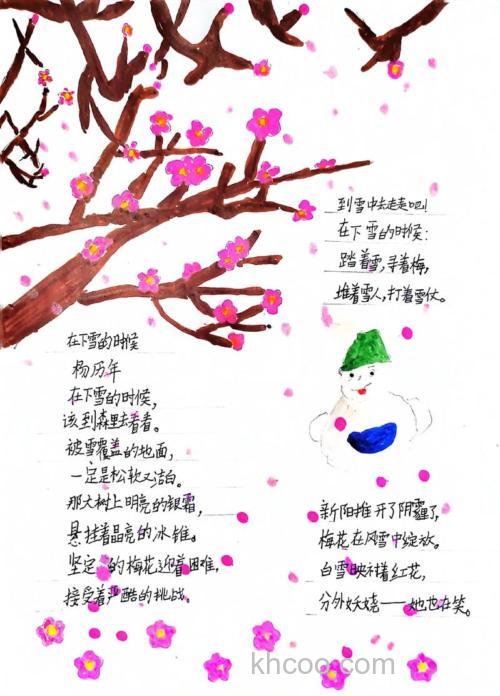 在下雪的时候
杨历年
在下雪的时候，
该到森里去看看。
被雪覆盖的地面，
一定是松软又洁白。
那大树上明亮的银霜，
悬挂着晶亮的冰锥。
坚定的梅花迎着困难，
接受着严酷的挑战。
到雪中去走走吧！
在下雪的时候：
踏着雪，寻着梅，
堆着雪人，打着雪仗。
新阳推开了阴霾，
梅花在风雪中绽放。
白雪映衬着红花，
分外妖娆——她也在笑。
khcoo.com